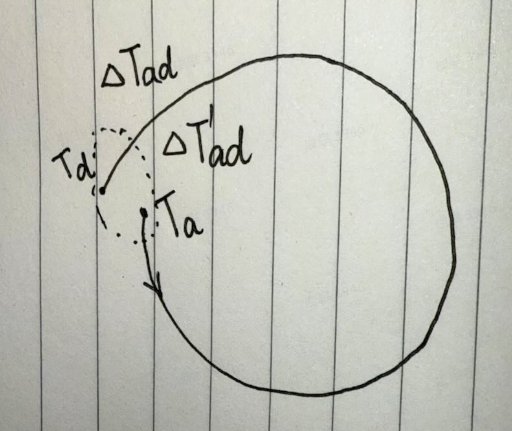 ΔTad
ΔT'ad
Td
Ta